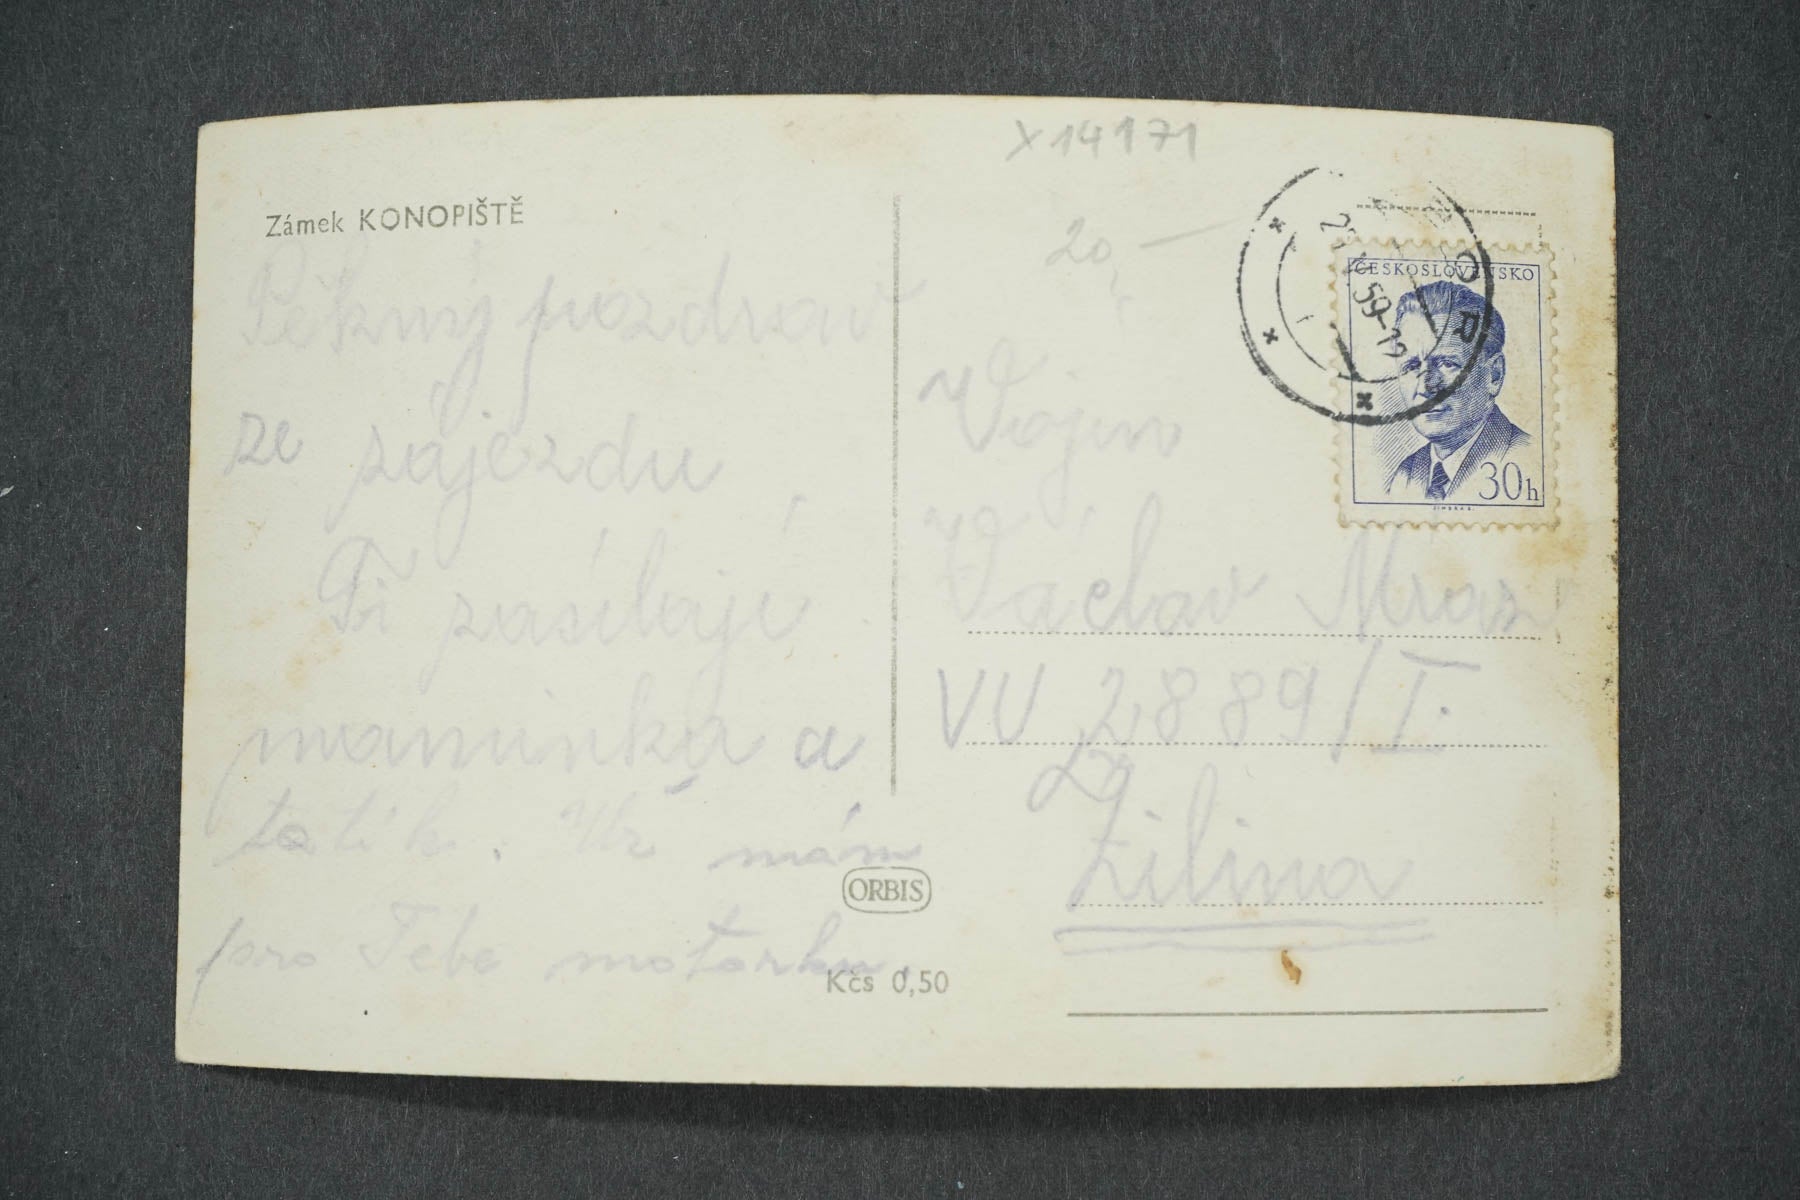 Zámek KONOPIŠTĚ
Pěkný pozdrav
ze zájezdu
Ti zasílají
maminka a
tatík. Už mám
pro Tebe motorku.
ORBIS
Kčs 0,50
X 14171
20,—
59-19
ČESKOSLOVENSKO
30h
Vojín
Václav Mráz
VU 2889/I.
Žilina